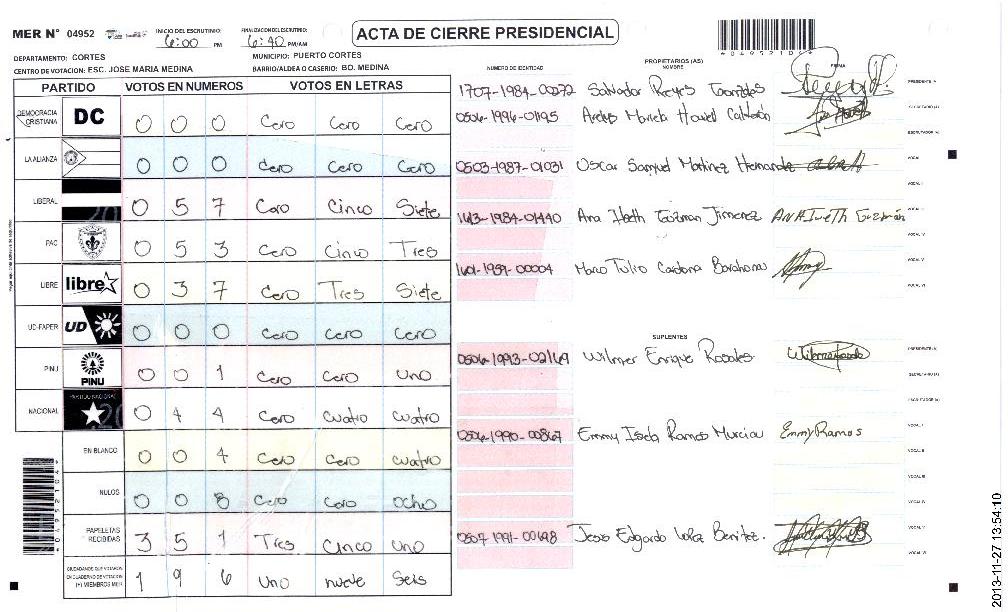 MER N° 04952
INICIO DEL ESCRUTINIO: 6:00 PM
FINALIZACION DEL ESCRUTINIO: 6:40 PM/AM
ACTA DE CIERRE PRESIDENCIAL
DEPARTAMENTO: CORTES
MUNICIPIO: PUERTO CORTES
CENTRO DE VOTACION: ESC. JOSE MARIA MEDINA
BARRIO/ALDEA O CASERIO: BO. MEDINA
PARTIDO VOTOS EN NUMEROS VOTOS EN LETRAS
DEMOCRACIA CRISTIANA DC 0 0 0 Cero Cero Cero
LA ALIANZA 0 0 0 Cero Cero Cero
LIBERAL 0 5 7 Cero Cinco Siete
PAC 0 5 3 Cero Cinco Tres
LIBRE libre 0 3 7 Cero Tres Siete
UD-FAPER UD 0 0 0 Cero Cero Cero
PINU PINU 0 0 1 Cero Cero Uno
NACIONAL PARTIDO NACIONAL 0 4 4 Cero Cuatro Cuatro
EN BLANCO 0 0 4 Cero Cero Cuatro
NULOS 0 0 8 Cero Cero Ocho
PAPELETAS RECIBIDAS 3 5 1 Tres Cinco Uno
CIUDADANOS QUE VOTARON EN CUADERNO DE VOTACION (+) MIEMBROS MER 1 9 6 Uno nueve Seis
NUMERO DE IDENTIDAD
PROPIETARIOS (AS)
NOMBRE
FIRMA
1707-1984-00272 Salvador Reyes PRESIDENTE
0506-1996-01195 Mariela Howel Calderón SECRETARIO (A)
ESCRUTADOR (A)
0503-1987-01031 Oscar Samuel Martinez Hernande VOCAL I
VOCAL
1613-1984-01440 Ana Iveth Guzman Jimenez ANA IVeTh Guzmán
VOCAL IV
VOCAL V
1601-1959-00004 Marco Tulio Cardona Barahona
VOCAL VI
SUPLENTES
0506-1993-02169 Wilmer Enrique Rosales PRESIDENTE (A)
SECRETARIO (A)
ESCRUTADOR (A)
0506-1990-00867 Emmy Isela Ramos Murcia Emmy Ramos VOCAL I
VOCAL II
VOCAL III
VOCAL IV
0507-1991-00698 Jesus Edgardo Benitez. VOCAL V
VOCAL VI
2013-11-27 13:54:10